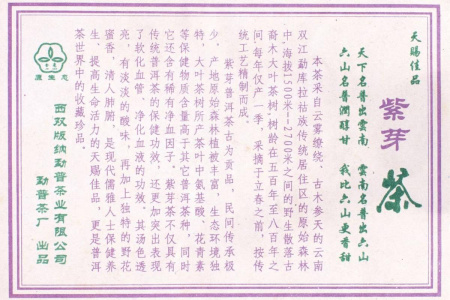 天赐佳品
紫芽
茶
天下名普出雲南
雲南名普出六山
六山名普潤醇甘
我比六山更香甜
本茶采自云雾缭绕、古木参天的云南
双江勐库拉祜族传统居住区的原始森林
中,海拔1500米—2700米之间的野生散落古
裔木大叶茶树,树龄在五百年至八百年之
间,每年仅产一季,采摘于立春之前,按传
统工艺精制而成。
紫芽普洱茶古为贡品,民间传承极
少,产地原始森林植被丰富,生态环境独
特,大叶茶树所产茶叶中氨基酸、花青素
等保健物质含量高于其它普洱茶种,同时
它还含有稀有净血因子。紫芽茶不仅具有
传统普洱茶的保健功效,还更加突出表现
了软化血管、净化血液的功效。其汤色透
亮,有淡淡的酸味,再加上独特的野花
蜜香,清人肺腑,是现代儒雅人士保健养
生、提高生命活力的天赐佳品,更是普洱
茶世界中的收藏珍品。
西双版纳勐普茶业有限公司
勐普茶厂 出品